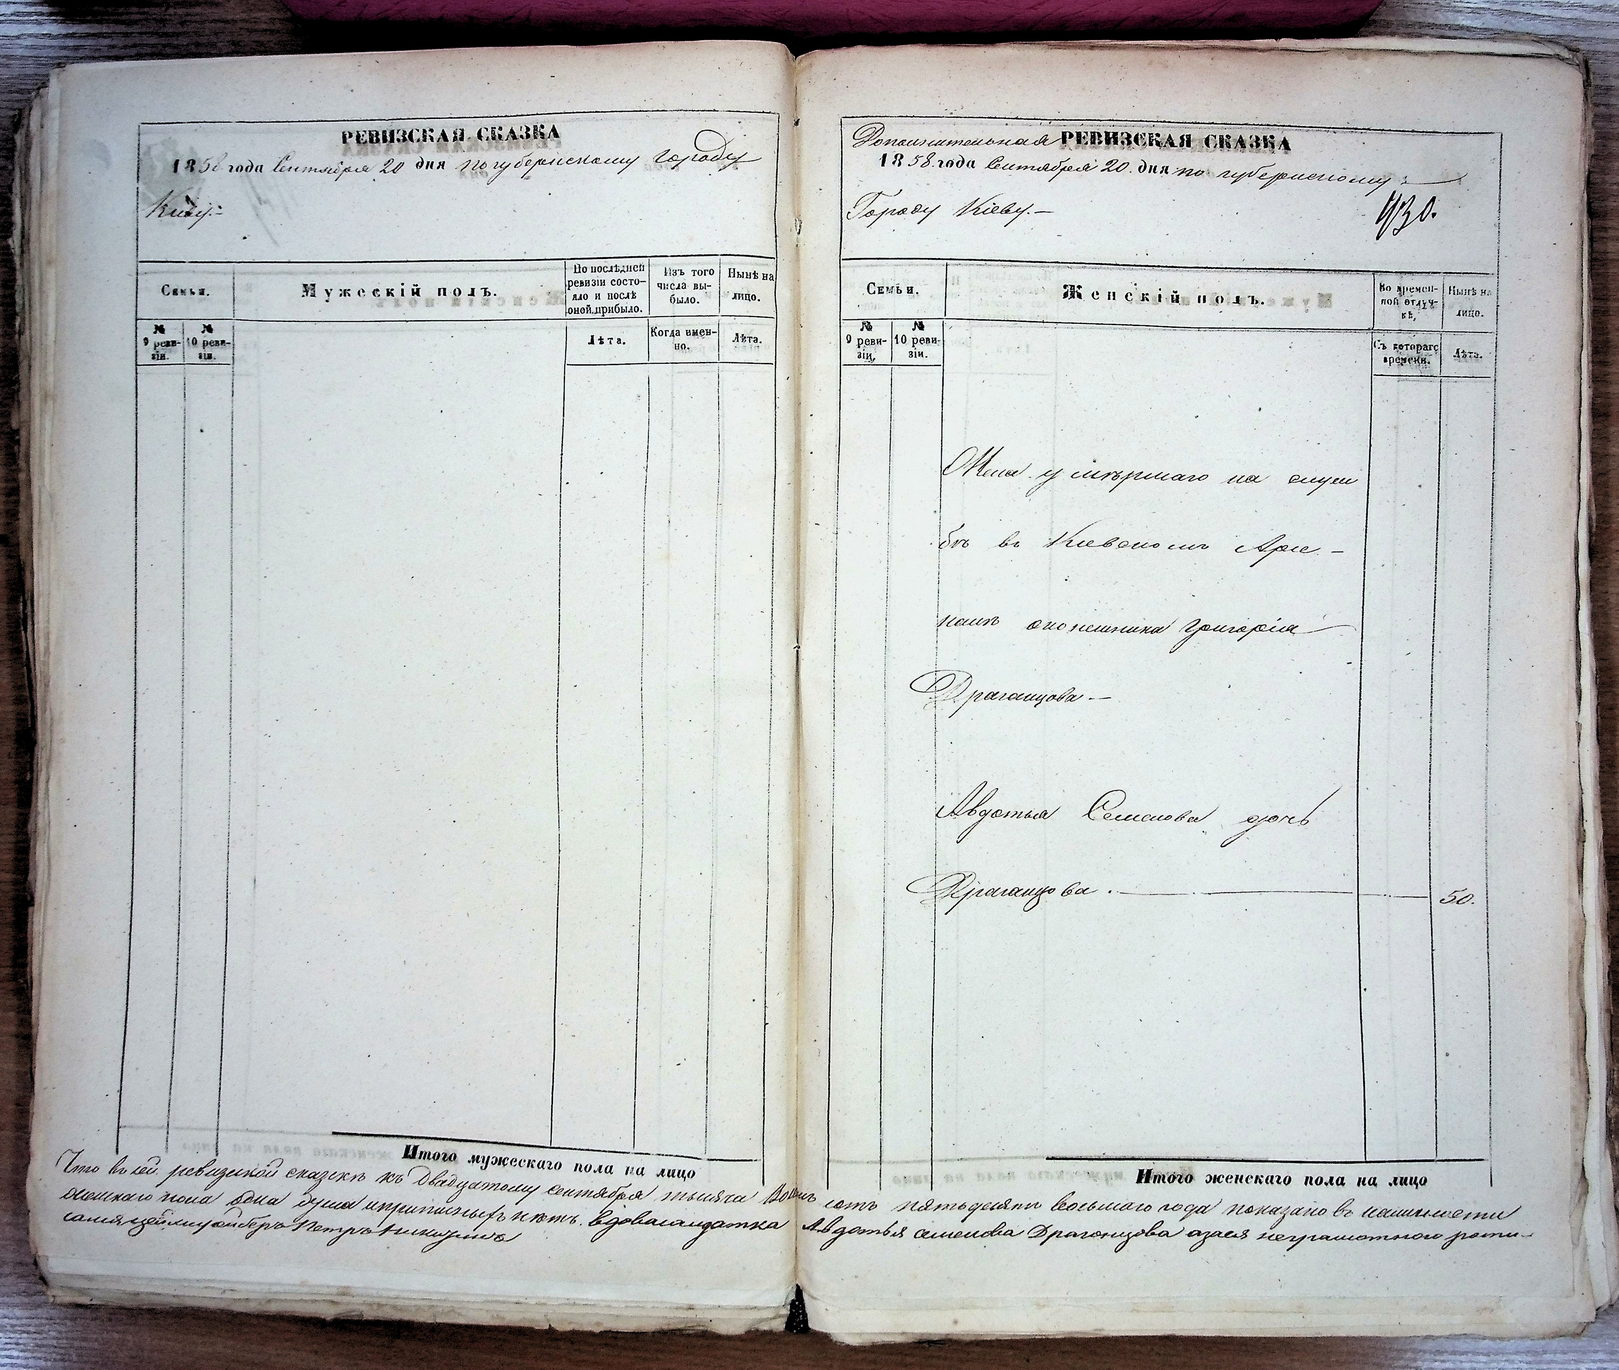 РЕВИЗСКАЯ СКАЗКА
1858 года Сентября 20 дня по губернскому городу
Кіеву.
Семьи.
Мужескій полъ.
По послѣдней ревизіи состояло и послѣ оной прибыло.
Изъ того числа выбыло.
Нынѣ на лицо.
№ 9 ревизіи.
№ 10 ревизіи.
Лѣта.
Когда именно.
Лѣта.
Итого мужескаго пола на лицо
Дополнительная РЕВИЗСКАЯ СКАЗКА
1858 года Сентября 20 дня по губернскому
Городу Кіеву.
930.
Семьи.
Женскій полъ.
Во временной отлучкѣ,
Нынѣ на лицо.
№ 9 ревизіи.
№ 10 ревизіи.
Съ котораго времени.
Лѣта.
Жена умѣршаго на служ
бѣ въ Кіевскомъ Арсе-
налѣ Григорія
Драганцова
Авдотья Семенова дочь
Драганцова. 50.
Итого женскаго пола на лицо
Что въ сей ревизской сказкѣ къ двадцатому сентября тысяча восемь сотъ пятьдесятъ восьмаго года показано въ наличности
женскаго пола одна душа и прописныхъ нѣтъ. вдова солдатка Авдотья Семенова Драганцова а за нея неграмотного роспи-